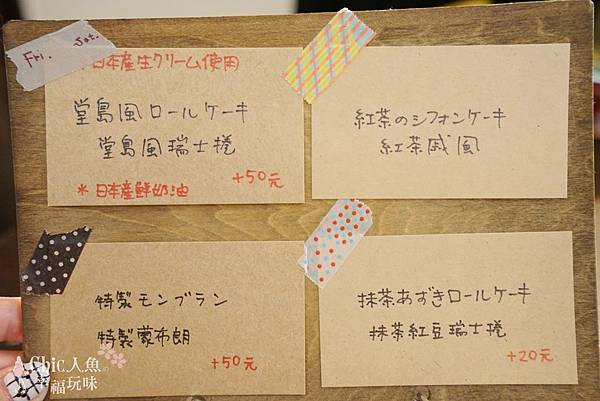 Fri. Sat.
＊日本産生クリーム使用
堂島風ロールケーキ
堂島風瑞士捲
＊日本産鮮奶油
+50元
紅茶のシフォンケーキ
紅茶戚風
特製モンブラン
特製蒙布朗
+50元
抹茶あずきロールケーキ
抹茶紅豆瑞士捲
+20元
A Chic 人魚。
幸福玩味